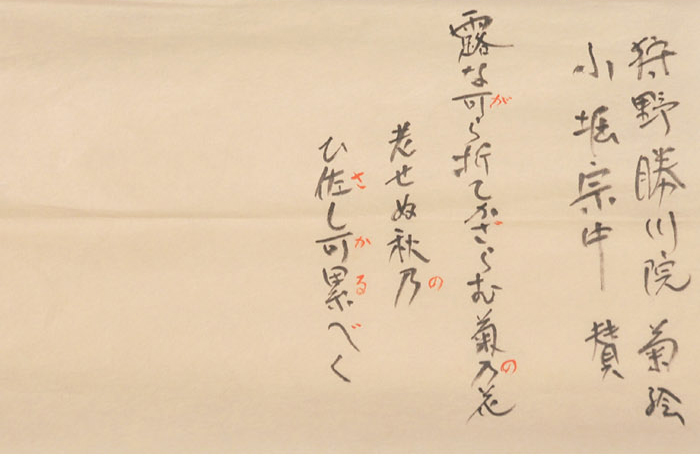 狩野勝川院 菊絵
小堀宗中 賛
露な可ら折てかざらむ菊乃花
が の
老せぬ秋乃
の
ひ佐し可累べく
さ か る